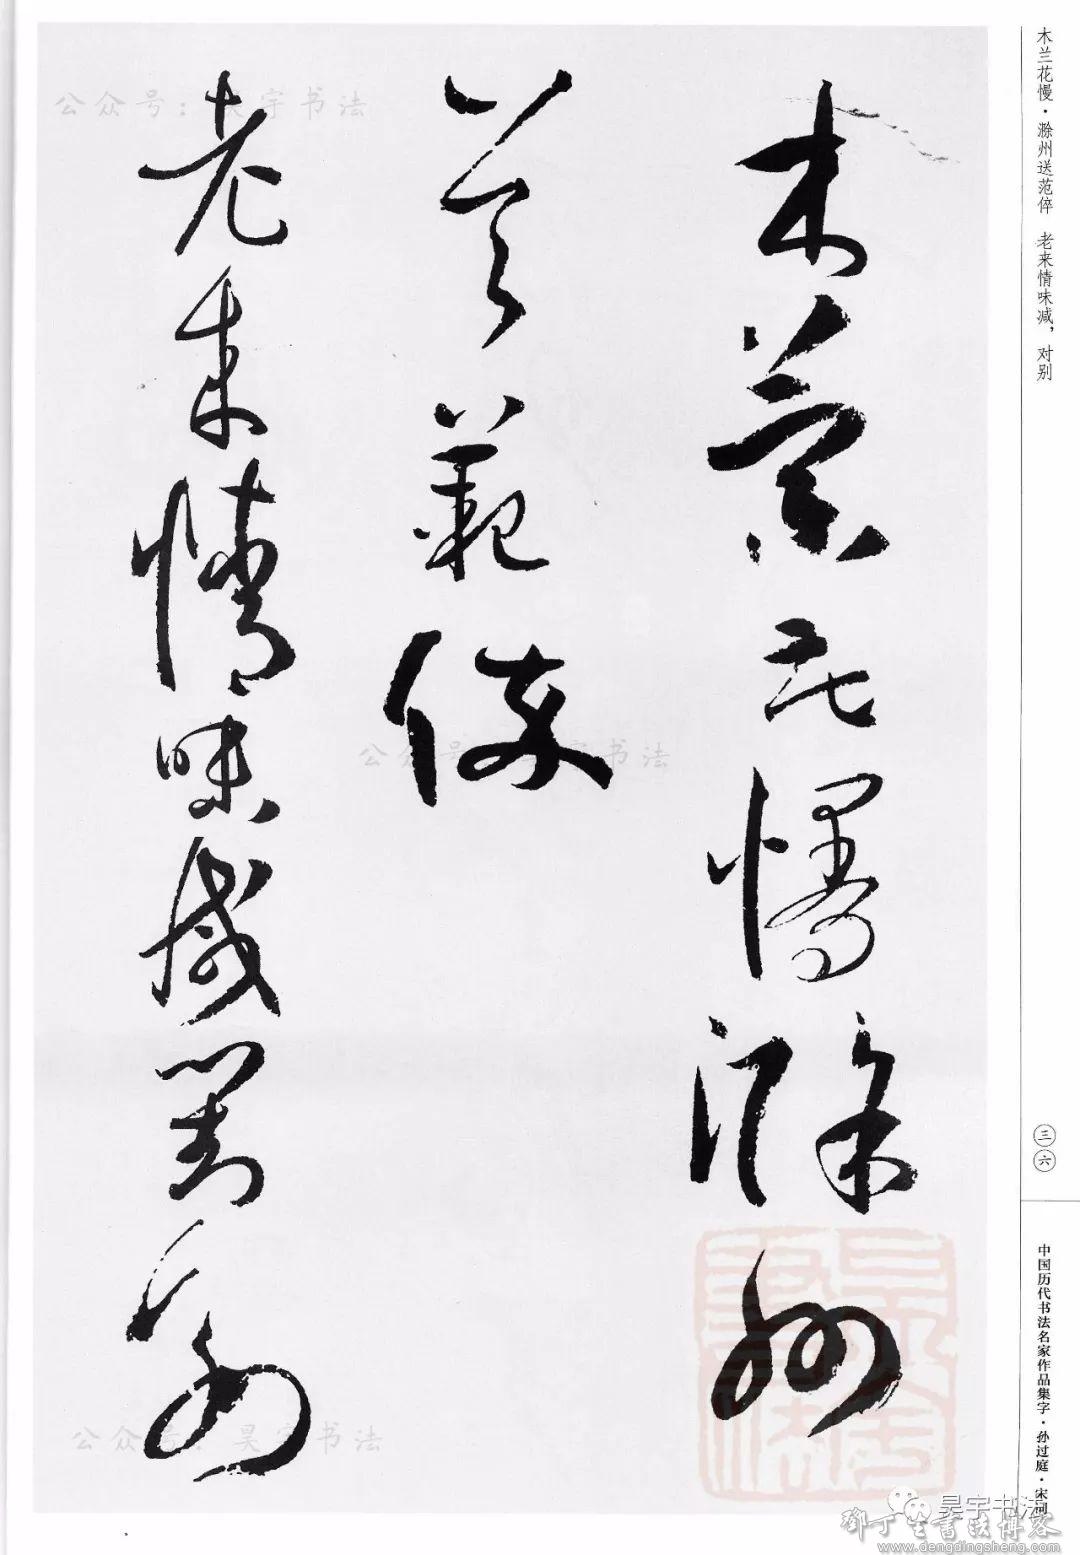 木兰花慢·滁州送范倅 老来情味减，对别
木蘭花慢滁州
送範倅
老来情味減對別
三六
中国历代书法名家作品集字·孙过庭·宋词
公众号：昊宇书法
公众号：昊宇书法
公众号：昊宇书法
昊宇书法
鄧丁生書法博客
www.dengdingsheng.com